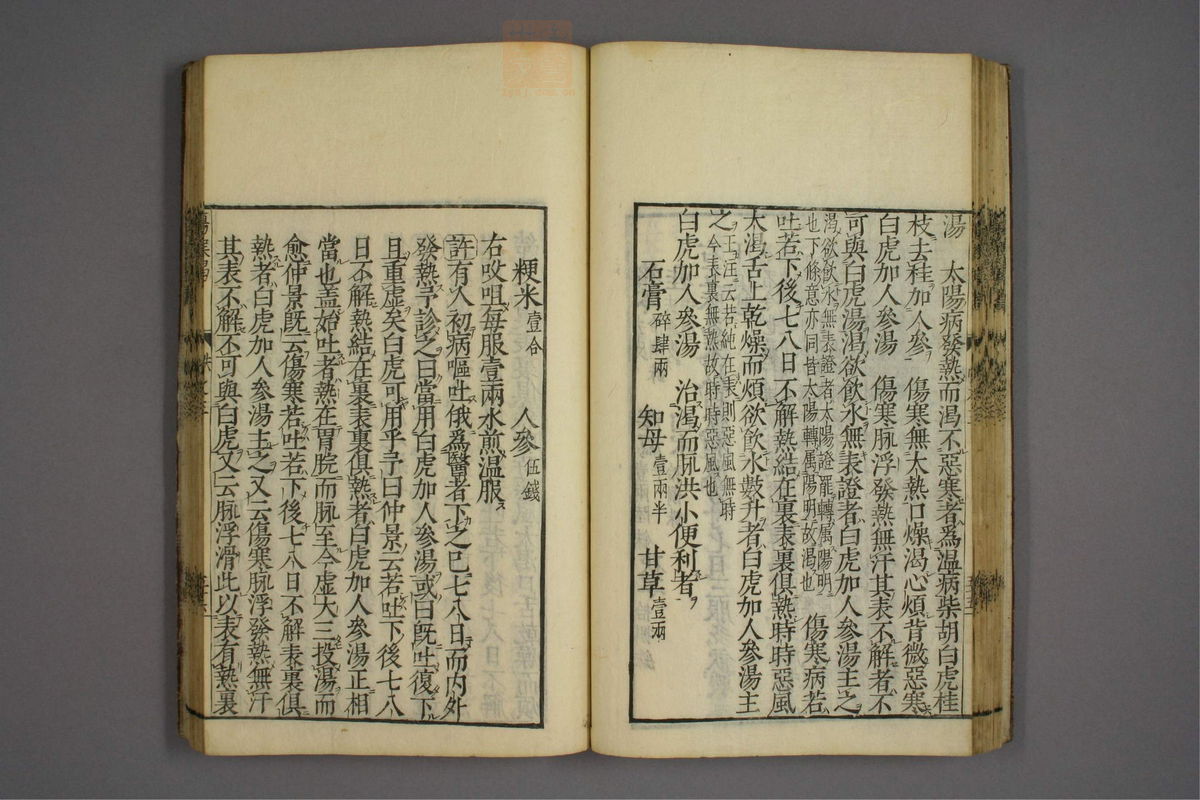 湯　太陽病發熱而渴不惡寒者爲溫病柴胡白虎桂
枝去桂加人參　傷寒無大熱口燥渴心煩背微惡寒
白虎加人參湯　傷寒脉浮發熱無汗其表不解者不
可與白虎湯渴欲飲水無表證者白虎加人參湯主之
渴欲飲水無表證者太陽證罷轉属陽明
也下條意亦同皆太陽轉属陽明故渴也　傷寒病若
吐若下後七八日不解熱結在裏表裏俱熱時時惡風
大渴舌上乾燥而煩欲飲水數升者白虎加人參湯主
之
王汪云若純在表則惡風無時
今表裏無熱故時時惡風也
白虎加人參湯　治渴而脉洪小便利者
石膏碎肆兩　知母壹兩半　甘草壹兩
粳米壹合　人參伍錢
右㕮咀每服壹兩水煎溫服
許有人初病嘔吐俄爲醫者下之已七八日而内外
發熱予診之曰當用白虎加人參湯或曰既吐復下
且重虛矣白虎可用乎予曰仲景云若吐下後七八
日不解熱結在裏表裏俱熱者白虎加人參湯正相
當也盖始吐者熱在胃脘而脉至今虛大三投湯而
愈仲景既云傷寒若吐若下後七八日不解表裏俱
熱者白虎加人參湯主之又云傷寒脉浮發熱無汗
其表不解不可與白虎又云脉浮滑此以表有熱裏